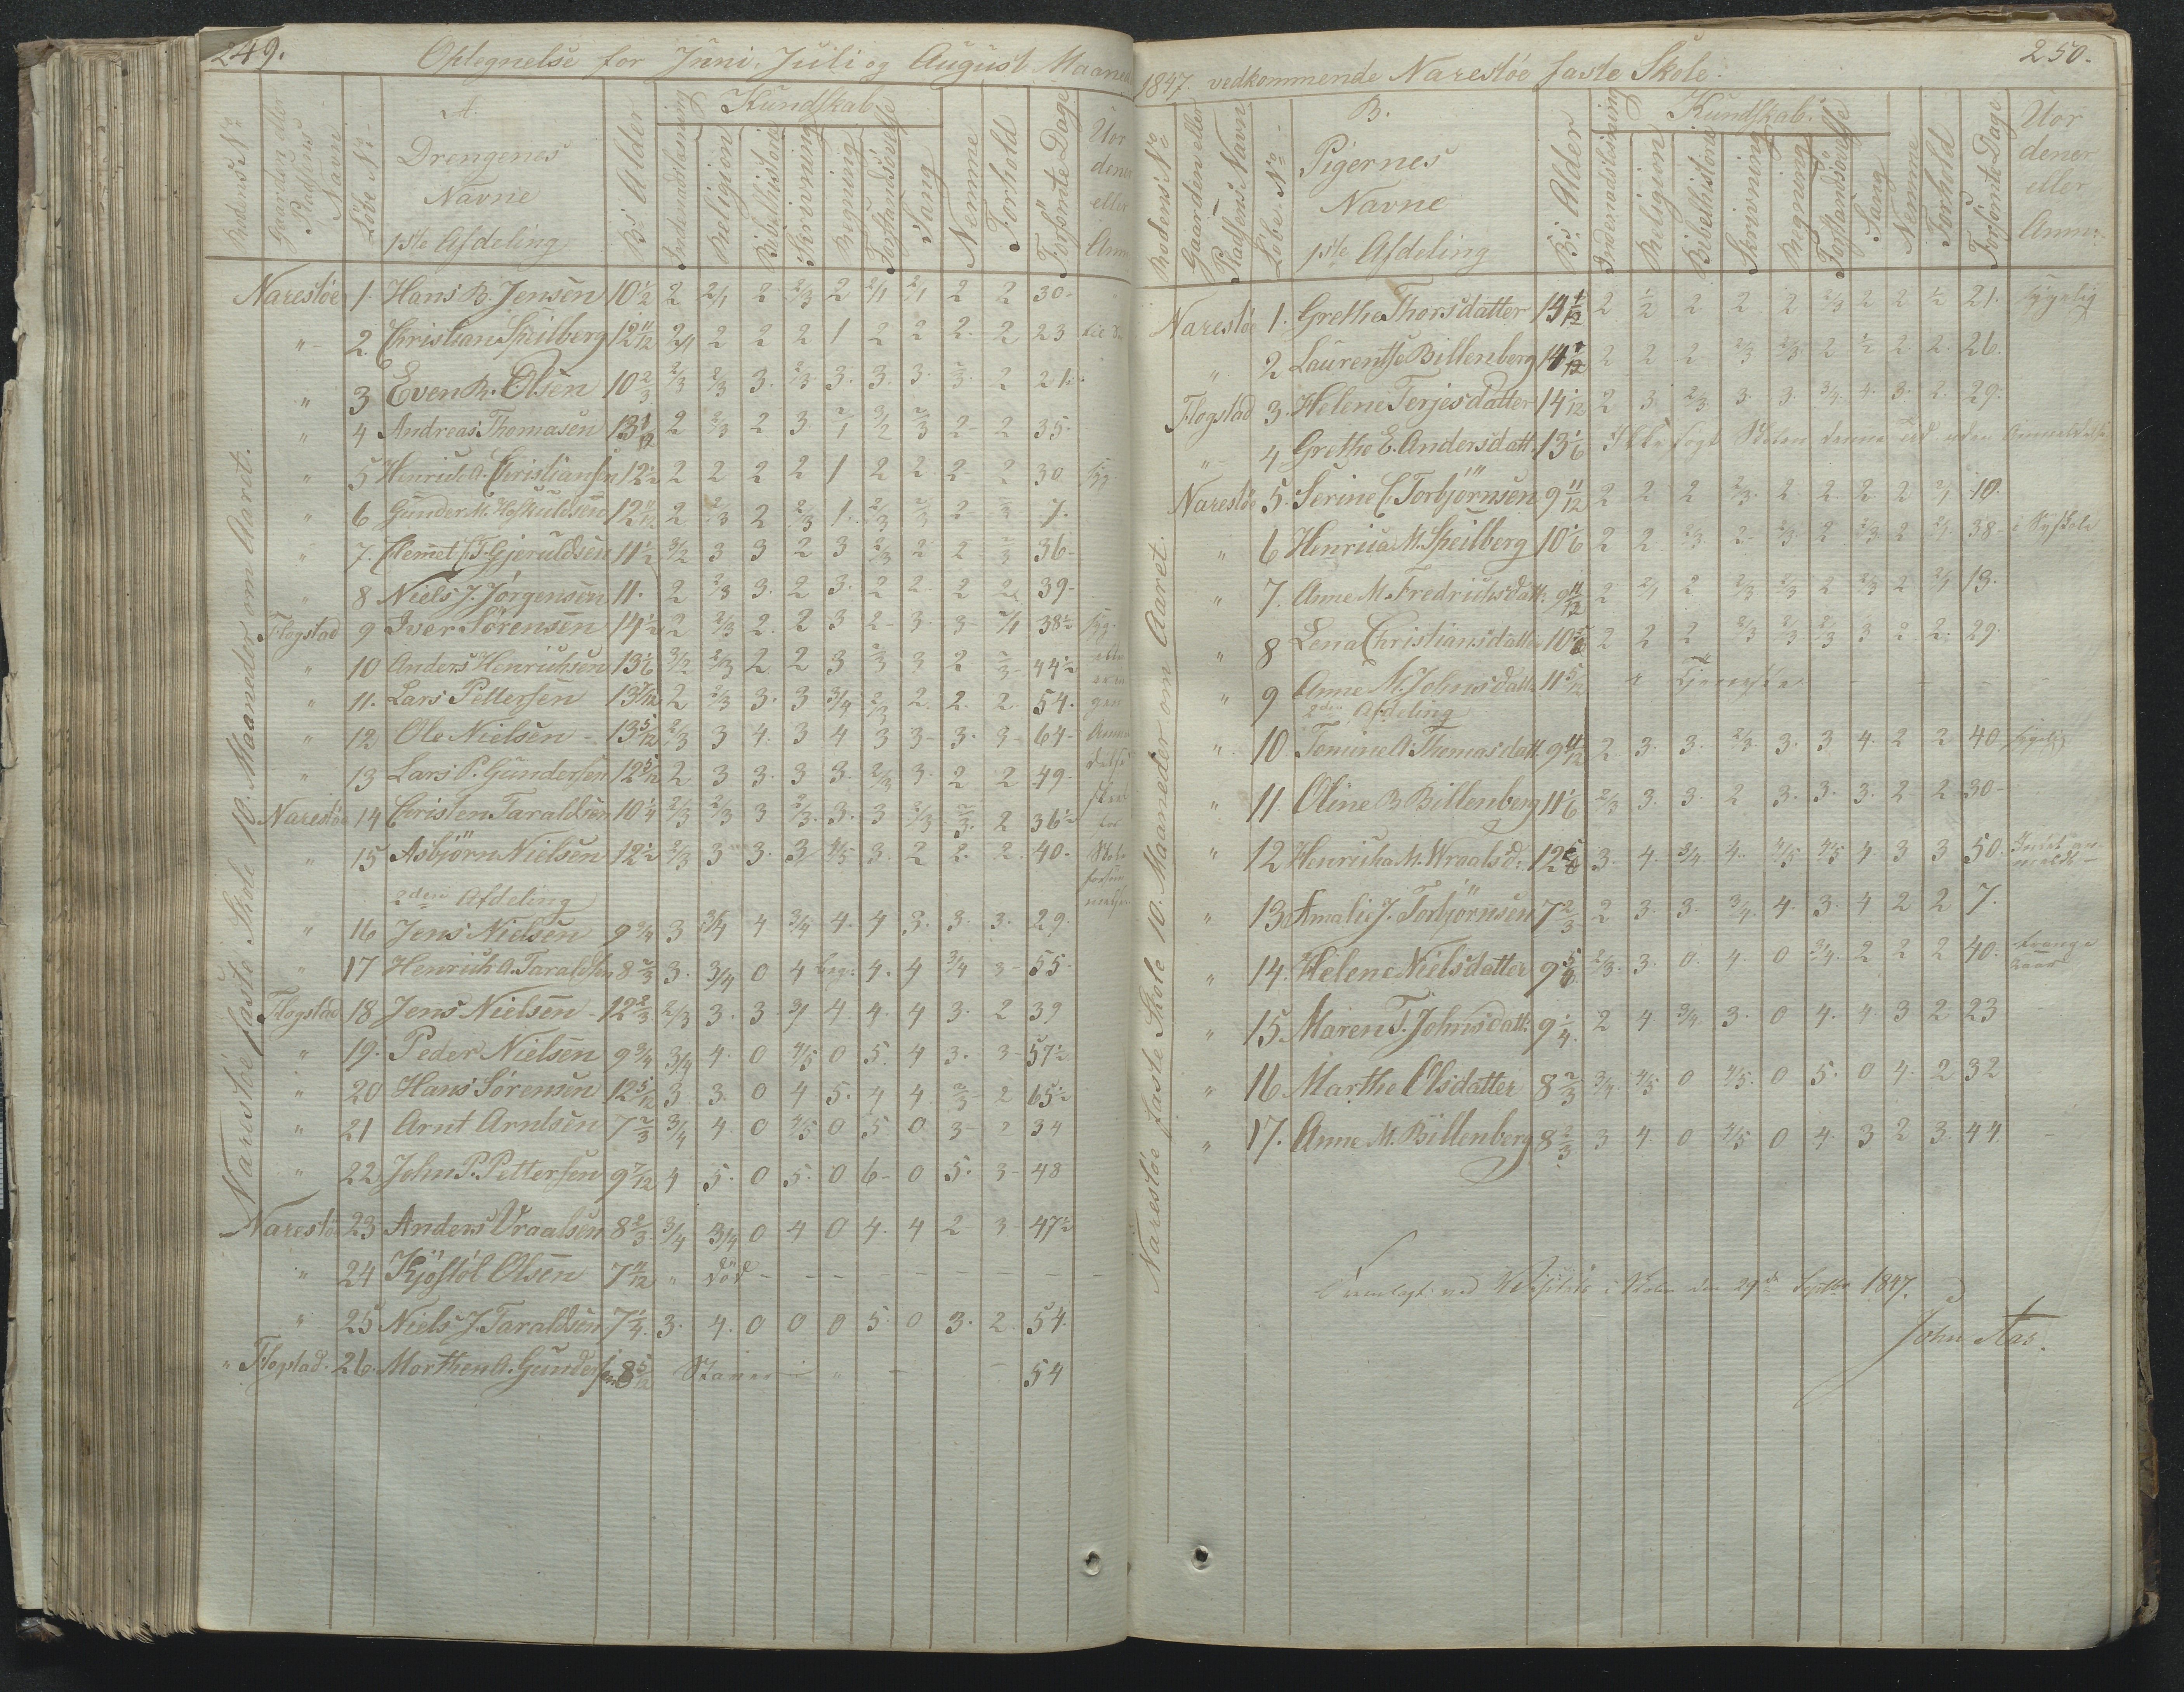 249.
Optegnelse for Juni, Juli og August Maaned
Rodens No
Gaarden eller Pladsens Navn
Löbe No
A.
Drengenes
Navne
1ste Afdeling
Bs Alder
Kundskab
Indenadslæsning
Religion
Bibelhistorie
Skrivning
Regning
Forstandsövelse
Sang
Nemme
Forhold
Forsömte Dage
Uor
dener
eller
Anm
Narestöe faste Skole 10. Maaneder om Aaret.
Narestöe 1. Hans B. Jensen 10 1/2 2 2/1 2 2/3 2 2/1 2/1 2 2 30-
" 2. Christian Speilberg 12 11/12 2/1 2 2 2 1 2 2 2. 2 23
" 3 Even R. Olsen 10 2/3 2/3 2/3 3. 2/3 3. 3. 3. 2/3 2 21.
" 4 Andreas Thomasen 2 2/3 2 3 2/1 3/2 2/3 2 2 35-
" 5 Henrich A. Christiansen 12 1/2 2 2 2 2 1 2 2 2 2 30
" 6 Gunder M. 12 11/12 2 2/3 2 2/3 1. 2/3 2/3 2 2/3 7.
" 7. Clemet C. T. Gjeruldsen 11 1/2 3/2 3 3 2 3 2/3 2 2 2/3 36-
" 8 Niels J. Jörgensen 11. 2 2/3 3. 2 3. 2 2. 2 2 39-
Flogstad 9 Iver Sörensen 14 1/2 2 2/3 2. 2 3 2- 3- 3- 2/1 38 1/2
" 10 Anders Henrichsen 13 1/6 3/2 2/3 2 2 3 2/3 3 2 2/3 44 1/2
" 11. Lars Pettersen 13 7/12 2 2/3 3. 3 3/4 2/3 2. 2. 2. 54.
" 12 Ole Nielsen 13 5/12 2/3 3 4. 3 4 3 3- 3. 3- 64-
" 13 Lars P. Gundersen 12 5/12 2 3 3. 3 3. 2/3 3. 2 2 49-
Narestöe 14 Christen Taraldsen 10 1/4 2/3 2/3 3 2/3. 3. 3 2/3 2/3. 2 36 1/2
" 15 Asbjörn Nielsen 12 1/2 2/3 3 3. 3 4/5 3. 2 2. 2. 40-
2den Afdeling
" 16 Jens Nielsen 9 3/4 3 3/4 4 3/4 4. 4 3. 3. 3. 29.
" 17 Henrich A. Taraldsen 8 2/3 3. 3/4 0 4 beg. 4. 4 3/4 3- 55-
Flogstad 18 Jens Nielsen 12 2/3 2/3 3. 3 3/4 4. 4. 4 3. 2 39
" 19. Peder Nielsen 9 3/4 3/4 4. 0 4/5 0 5. 4 3. 3- 57 1/2
" 20 Hans Sörensen 12 5/12 3 3. 0 4 5. 4 4. 2/3 2 65 1/2
" 21 Arnt Arntsen 7 2/3 3/4 4. 0 4/5 0 5 0 3- 2 34
" 22. John P. Pettersen 9 7/12 4 5. 0 5. 0 6- 0 5. 3- 48
Narestöe 23 Anders Vraalsen 8 2/3 3/4 3/4 0 4 0 4. 4 2 3- 47 1/2
" 24 Kjöstöl Olsen 7 11/12 " död -
" 25 Niels J. Taraldsen 7 1/4. 3. 4. 0 0 0 5 0 3. 2. 54.
" Flogstad. 26. Morthen A. Gundersen 8 5/12 54
1847. vedkommende Narestöe faste Skole.
250.
Rodens No
Gaarden eller Pladsens Navn
Löbe No
B.
Pigernes
Navne
1ste Afdeling
Bs Alder
Kundskab.
Indenadslæsning
Religion
Bibelhistorie
Skrivning
Regning
Forstandsövelse
Sang
Nemme
Forhold
Forsömte Dage
Uor
dener
eller
Anm:
Narestöe faste Skole 10. Maaneder om Aaret.
Narestöe 1. Grethe Thorsdatter 2 1/2 2 2 2 2/3 2 2 1/2 21. sygelig
" 2 Laurentse Billenberg 2 2 2 2/3 2/3 2 1/2 2 2. 26.
Flogstad 3. Helene Terjesdatter 14 1/12 2 3 2/3 3. 3. 3/4 4. 3. 2. 29.
" 4 Grethe E. Andersdatt. 13 1/6 Ikke søgt Skolen denne Tid uden Anmeldelse
Narestöe 5. Serine C. Torbjörnsen 9 11/12 2 2 2 2/3. 2. 2. 2. 2 2/1 10.
" 6 Henrica M. Speilberg 10 1/6 2 2 2/3 2- 2/3 2 2/3 2 2/1 38- i Syskole
" 7. Anne M. Fredrichsdatt. 9 11/12 2 2/1 2 2/3 2/3 2 2/3 2 2/1 13.
" 8 Lena Christiansdatter 2 2 2 2/3 2/3 2/3 3 2. 2. 29.
" 9 Anne M. Johnsdatt. 11 5/12 " Tjeneste -
2den Afdeling
" 10 Tomine A. Thomasdatt. 2 3. 3. 2/3 3. 3 4. 2 2 40 sygelig
" 11 Oline B. Billenberg 11 1/6 2/3 3. 3. 2 3. 3. 3. 2 2 30-
" 12 Henricha M. Wraalsd. 3. 4. 3/4 4. 4/5 4/5 4 3 3 50.
" 13. Amalie J. Torbjörnsen 7 2/3 2 3. 3. 3/4 4. 3. 4 2 2 7.
" 14. Helene Nielsdatter 2/3 3. 0. 4. 0 3/4 2 2 2 40. trange Kaar
" 15. Maren T. Johnsdatt. 9 1/4. 2 4. 3/4 3. 0 4. 4. 3 2 23
" 16 Marthe Olsdatter 8 2/3 3/4. 4/5 0 4/5. 0 5. 0 4. 2 32
" 17. Anne M. Billenberg 8 2/3 3 4. 0 4/5 0 4. 3 2 3. 44.
Fremlagt ved Visitats i Skolen den 29de Septbr 1847.
John Aas.